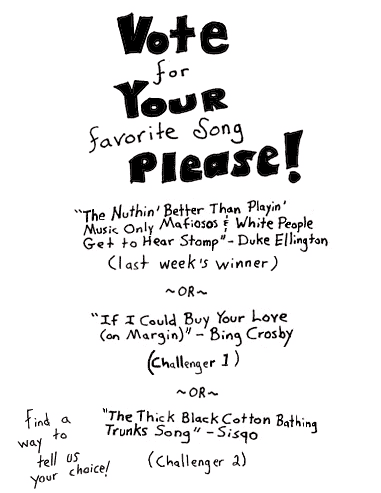 Vote
for
YOUR
favorite Song
Please!
"The Nuthin' Better Than Playin'
Music Only Mafiosos & White People
Get to Hear Stomp" - Duke Ellington
(last week's winner)
~OR~
"If I Could Buy Your Love
(on Margin)" - Bing Crosby
(Challenger 1)
~OR~
"The Thick Black Cotton Bathing
Trunks Song" - Sisqo
(Challenger 2)
find a
way to
tell us
your choice!